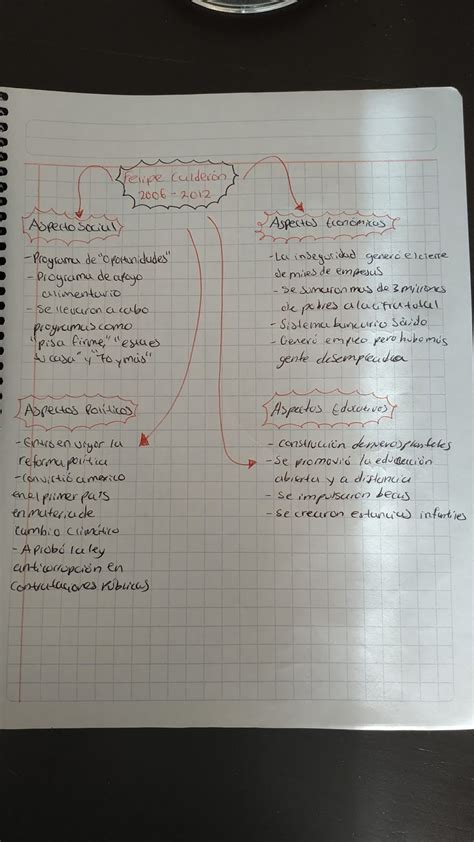 Felipe Calderón
2006-2012
Aspecto Social
-Programa de "Oportunidades"
- Programa de apoyo
alimentario
- Se llevaron a cabo
programas como
"pisa firme," "esta es
tu casa" y "70 y más"
Aspectos Económicos
-La inseguridad generó el cierre
de miles de empesas
- Se sumaron mas de 3 millones
de pobres a la cifra total
- Sistema bancario Sólido
- Generó empleo pero hubo más
gente desempleada
Aspectos Políticos
- Entro en vigor la
reforma política
- Convirtió a mexico
en el primer país
en materia de
cambio climático
- Aprobó la ley
anticorrupción en
contrataciones Públicas
Aspectos Educativos
- construcción de nuevos planteles
- Se promovió la educación
abierta y a distancia
- Se impulsaron becas
- Se crearon estancias infantiles